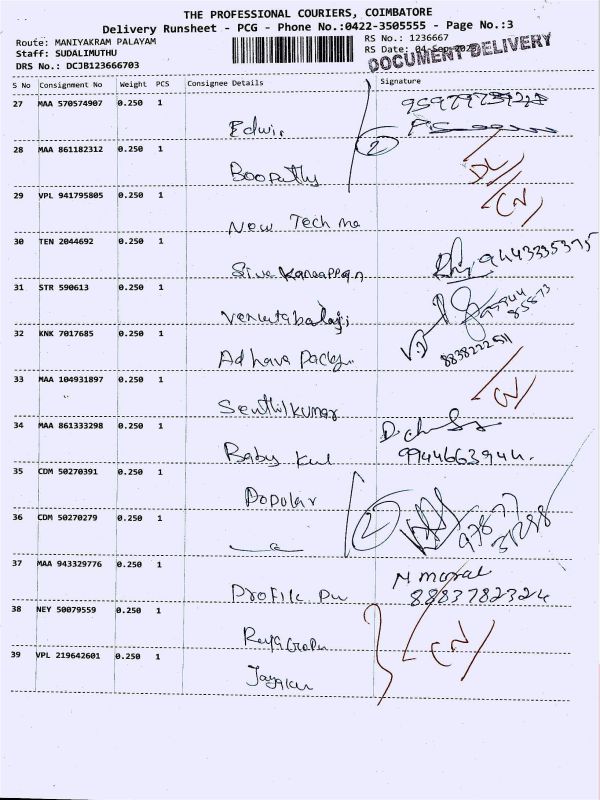 THE PROFESSIONAL COURIERS, COIMBATORE
Delivery Runsheet - PCG - Phone No.:0422-3505555 - Page No.:3
Route: MANIYAKRAM PALAYAM
RS No.: 1236667
Staff: SUDALIMUTHU
RS Date: 04-Sep
DRS No.: DCJB123666703
DOCUMENT DELIVERY
S No Consignment No Weight PCS Consignee Details Signature
27 MAA 570574907 0.250 1
Edwin
28 MAA 861182312 0.250 1
2
Boopathy
DL
29 VPL 941795805 0.250 1
CN
New Tech ma
30 TEN 2044692 0.250 1
9443335375
31 STR 590613 0.250 1
32 KNK 7017685 0.250 1
8838222511
Adhava
33 MAA 104931897 0.250 1
CN
Senthilkumar
34 MAA 861333298 0.250 1
Baby
9944663944.
35 CDM 50270391 0.250 1
Popular
36 CDM 50270279 0.250 1
2
97877
31288
37 MAA 943329776 0.250 1
8883782324
38 NEY 50079559 0.250 1
CN
39 VPL 219642601 0.250 1